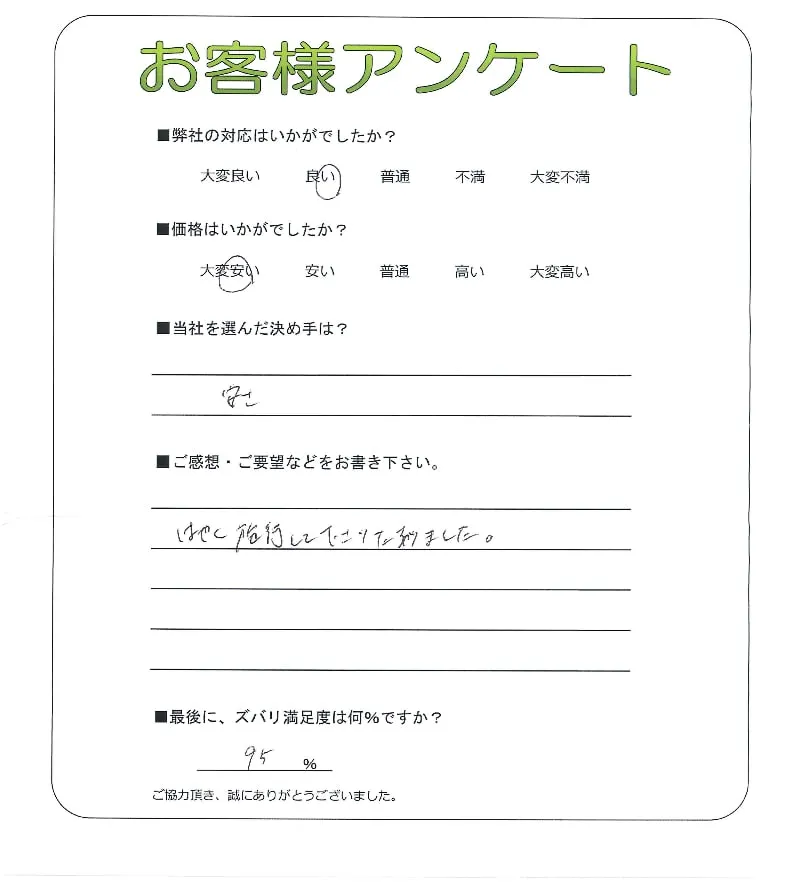 お客様アンケート
■弊社の対応はいかがでしたか？
大変良い 良い 普通 不満 大変不満
■価格はいかがでしたか？
大変安い 安い 普通 高い 大変高い
■当社を選んだ決め手は？
安さ
■ご感想・ご要望などをお書き下さい。
はやく施行して下さり助かりました。
■最後に、ズバリ満足度は何%ですか？
95 %
ご協力頂き、誠にありがとうございました。